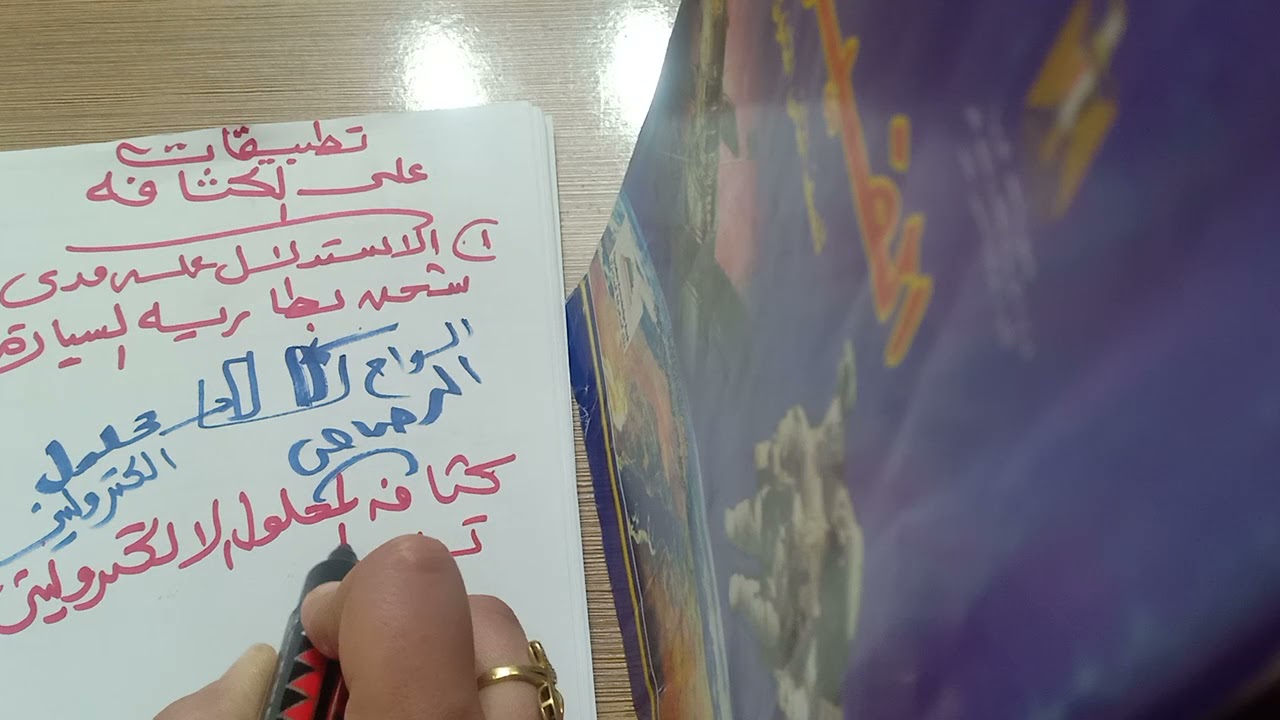 تطبيقات
على الكثافه
١) الاستدلال على مدى
شحن بطاريه السيارة
الواح
الرصاص
محلول
الكتروليتى
كثافه المحلول الالكتروليتى